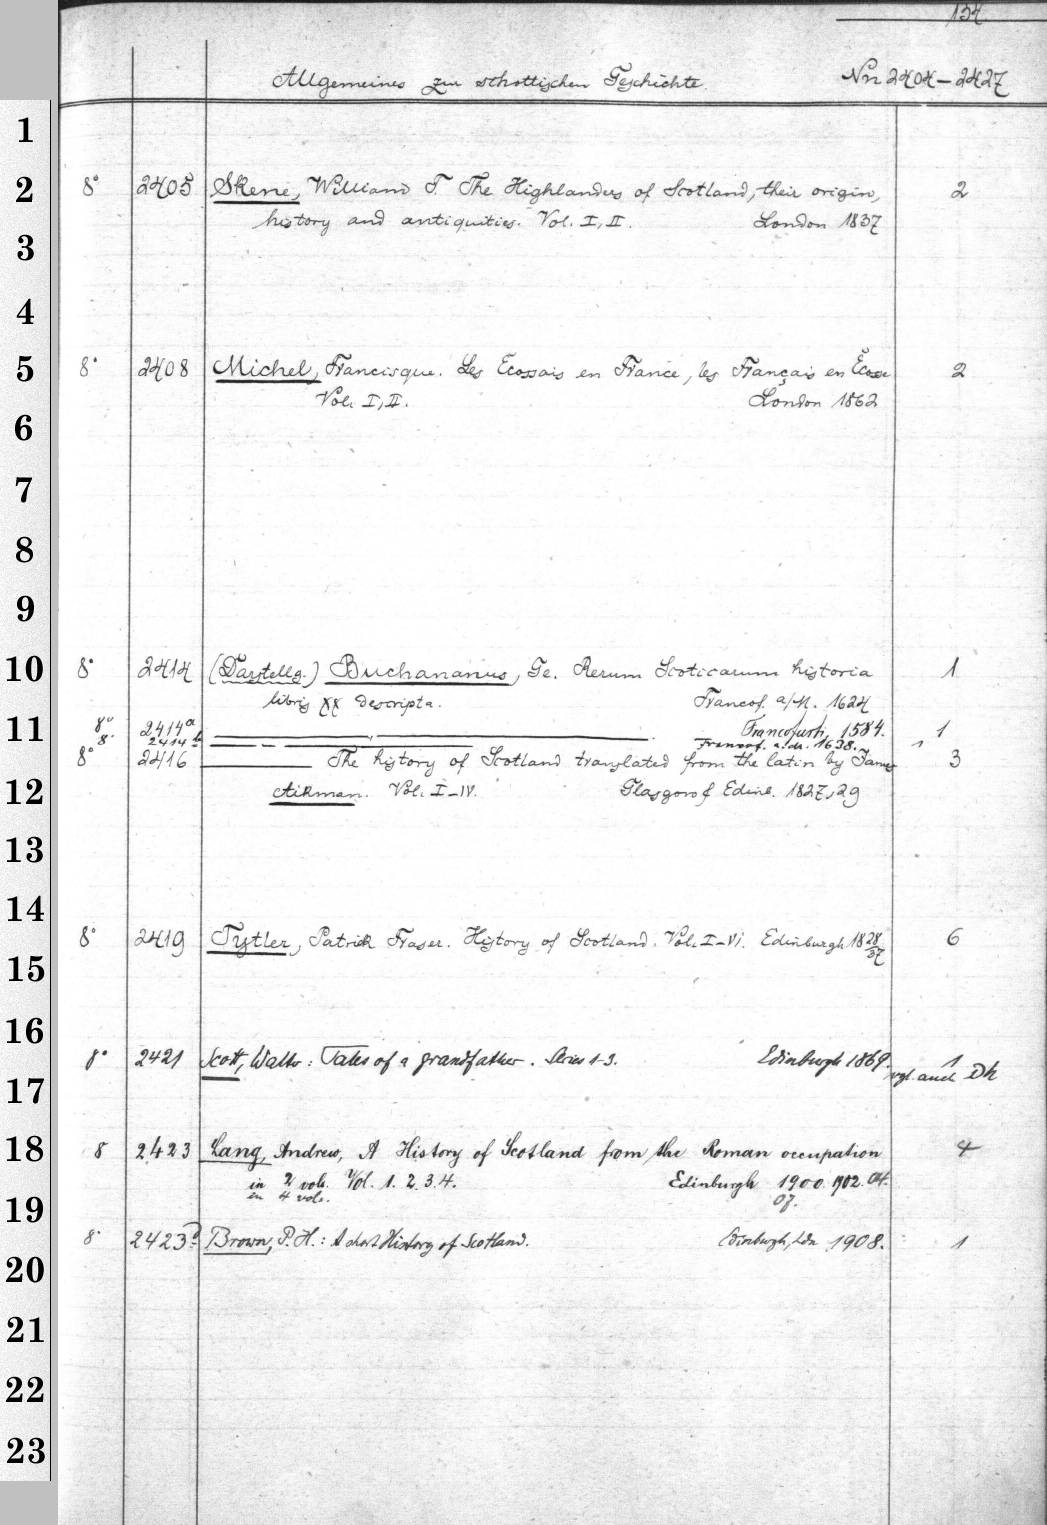 134
Allgemeines zur schottischen Geschichte. Nrr 2404-2427
1
2 8° 2405 Skene, William F. The Highlanders of Scotland, their origin, 2
history and antiquities. Vol. I, II. London 1837
3
4
5 8° 2408 Michel, Francisque. Les Ecossais en France, les Français en Écosse 2
Vol. I, II. London 1862
6
7
8
9
10 8° 2414 (Darstellg.) Buchananus, Ge. Rerum Scoticarum historia 1
libris XX descripta. Francof. a/M. 1624
11 8° 2414a Francofurti, 1584. 1
8° 2414b Francof. a. M. 1638. 1
8° 2416 The history of Scotland translated from the latin by James 3
12 Aikman. Vol. I-IV. Glasgow & Edinb. 1827, 29
13
14
8° 2419 Tytler, Patrick Fraser. History of Scotland. Vol. I-VI. Edinburgh 1828/37 6
15
16
8° 2421 Scott, Walter: Tales of a grandfather. Series 1-3. Edinburgh 1869. 1
17 vgl. auch Dk
18 8 2423 Lang, Andrew, A History of Scotland from the Roman occupation 4
in 2 vols. Vol. 1. 2. 3. 4. Edinburgh 1900. 902. 04.
in 4 vols. 07.
19
8° 2423a Brown, P. H.: A short History of Scotland. Edinburgh, Ldn 1908. 1
20
21
22
23